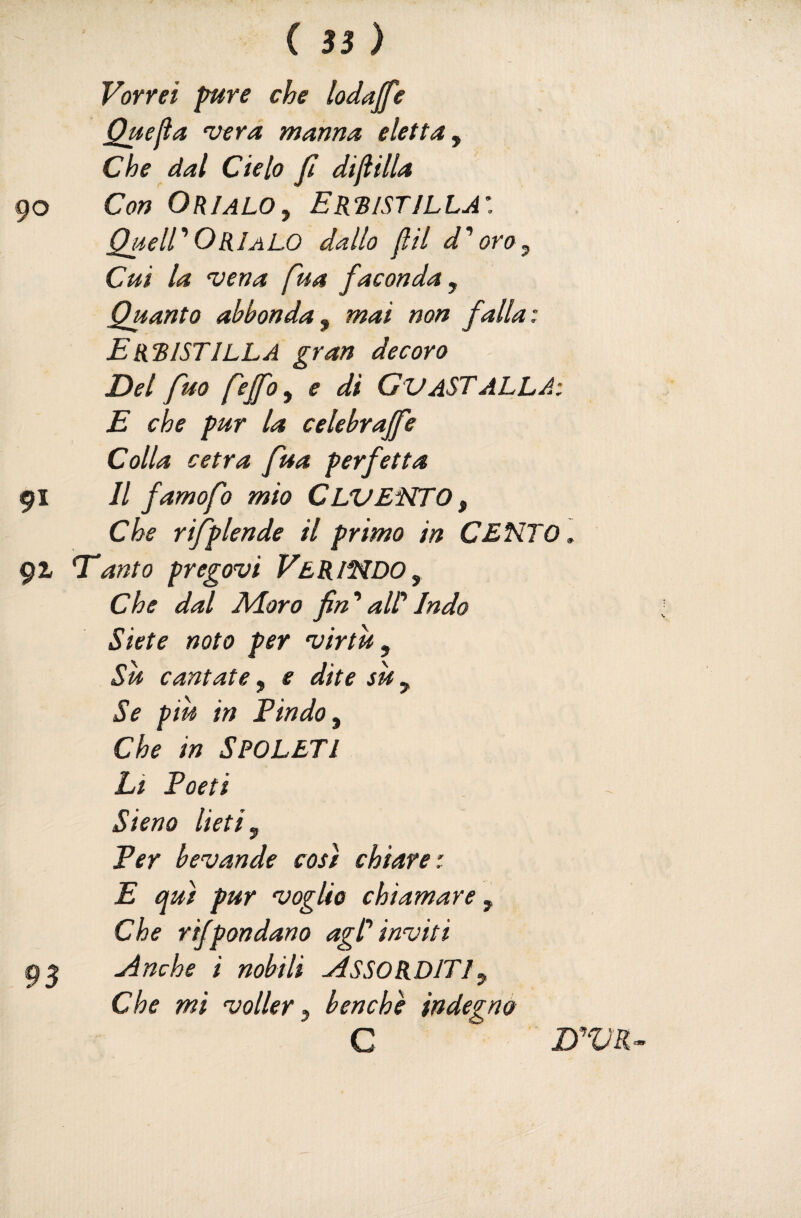 ( 33 )
Vorrei pure che lodaſſe
Queſta vera manna eletta,
Che dal Cielo ſi diſtilla
90 Con ORIALO, ERBISTILLA:
Quell' ORIALO dallo ſtil d' oro,
Cui la vena ſua faconda,
Quanto abbonda, mai non falla:
ERBISTILLA gran decoro
Del ſuo ſeſſo, e di GVASTALLA:
E che pur la celebraſſe
Colla cetra ſua perfetta
91 Il famoſo mio CLVENTO,
Che riſplende il primo in CENTO.
92 Tanto pregovi VERINDO,
Che dal Moro fin' all' Indo
Siete noto per virtù,
Sù cantate, e dite sù,
Se più in Pindo,
Che in SPOLETI
Li Poeti
Sieno lieti,
Per bevande così chiare:
E quì pur voglio chiamare,
Che riſpondano agl' inviti
93 Anche i nobili ASSORDITI,
Che mi voller, benchè indegno
C D'VR-